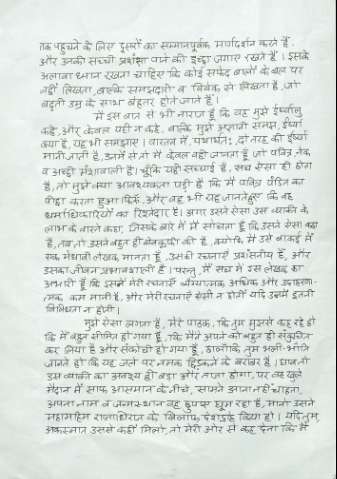 तक पहुंचने के लिए दूसरों का सम्मानपूर्वक मार्गदर्शन करते हैं,
और उनकी सच्ची प्रशंसा पाने की इच्छा जगाए रखते हैं। इसके
अलावा ध्यान रखना चाहिए कि कोई सफेद बालों के बल पर
नहीं लिखता, बल्कि समझदारी व विवेक से लिखता है, जो
बढ़ती उम्र के साथ बेहतर होते जाते हैं।
मैं इस बात से भी नाराज हूँ कि वह मुझे ईर्ष्यालु
कहे, और केवल यही न कहे, बल्कि मुझे अज्ञानी समझ, ईर्ष्या
क्या है, यह भी समझाए। वास्तव में, यथार्थतः दो तरह की ईर्ष्या
मानी जाती है, उनमें से तो मैं केवल वही जानता हूँ जो पवित्र, नेक
व अच्छी मंशावाली है। चूँकि यही सच्चाई है, सच ऐसा ही होगा
है, तो मुझे क्या आवश्यकता पड़ी है कि मैं पवित्र पंडित का
पीछा करता हुआ फिरूँ, और वह भी यह जानते हुए कि वह
धर्माधिकारियों का रिश्तेदार है। अगर उसने ऐसा उस व्यक्ति के
लाभ के वास्ते कहा, जिसके बारे में मैं सोचता हूँ कि उसने ऐसा कहा
है, तब तो उसने बहुत ही बेवकूफी की है, क्योंकि मैं उसे वाकई में
एक मेधावी लेखक मानता हूँ, उसकी रचनाएँ प्रशंसनीय हैं, और
उसका जीवन प्रभावशाली है। परन्तु, मैं सच में इस लेखक का
आभारी हूँ कि इसने मेरी रचनाएँ व्यंग्यात्मक अधिक और उदाहरणा-
त्मक कम मानी हैं, और मेरी रचनाएँ ऐसी न होतीं यदि उनमें इतनी
विविधता न होती।
मुझे ऐसा लगता है, मेरे पाठक, कि तुम मुझसे कह रहे हो
कि मैं बहुत सीमित हो गया हूँ, कि मैंने अपने को बहुत ही संकुचित
कर लिया है और संकोची हो गया हूँ, हालाँकि तुम भली-भाँति
जानते हो कि यह जले पर नमक छिड़कने के बराबर है। हालाँकि
उस व्यक्ति का अवश्य ही बड़ा और ताज़ा होगा, पर वह खुले
मैदान में साफ आसमान के नीचे, सामने आना नहीं चाहता,
अपना नाम व जन्मस्थान वह छुपाए घूम रहा है, मानो उसने
महामहिम राजाधिराज के खिलाफ देशद्रोह किया हो। यदि तुम,
अकस्मात उससे कहीं मिलो, तो मेरी ओर से कह देना कि मैं